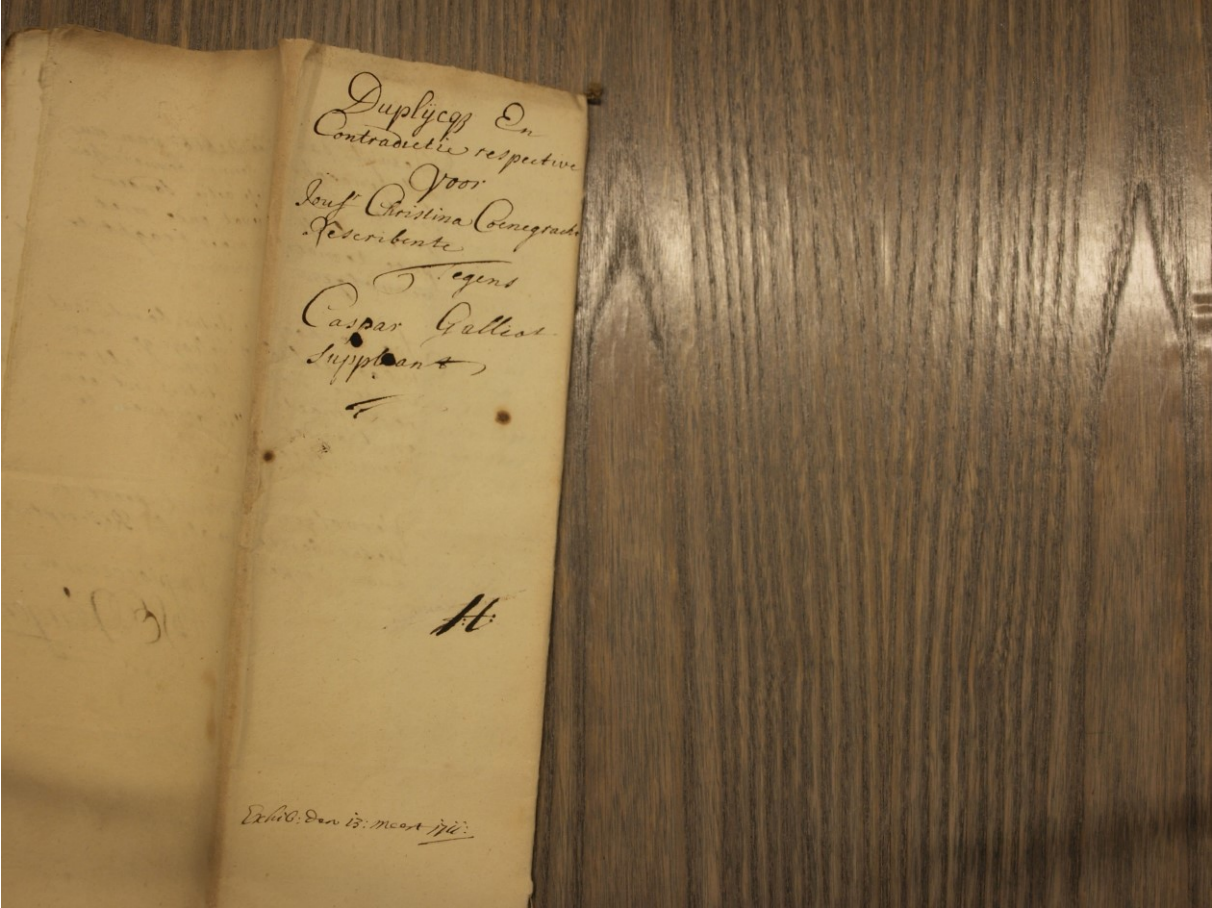 Duplijcq En
Contradictie respective
Voor
Jouf.r Christina Coenegracht
Rescribente
Tegens
Caspar Galliot
Suppliant
H:
Exhib: den 13: meert 1711: